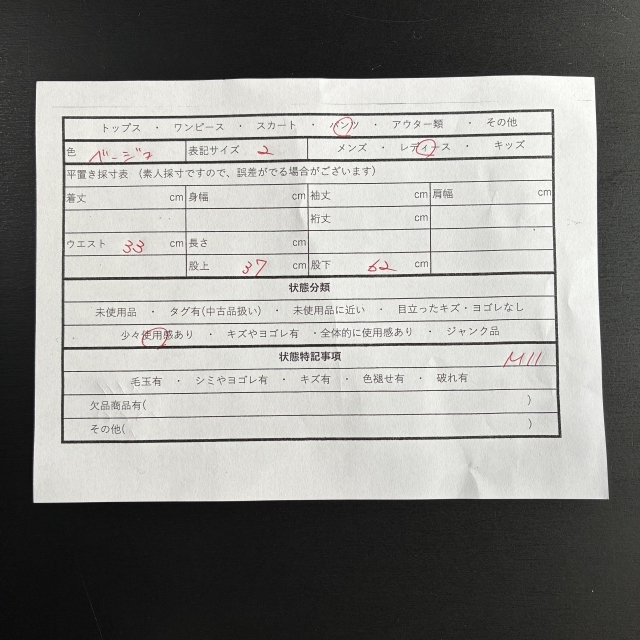 トップス ・ ワンピース ・ スカート ・ パンツ ・ アウター類 ・ その他
色 ベージュ 表記サイズ 2 メンズ ・ レディース ・ キッズ
平置き採寸表 (素人採寸ですので、誤差がでる場合がございます)
着丈 cm 身幅 cm 袖丈 cm 肩幅 cm
裄丈 cm
ウエスト 33 cm 長さ cm
股上 37 cm 股下 62 cm
状態分類
未使用品 ・ タグ有(中古品扱い) ・ 未使用品に近い ・ 目立ったキズ・ヨゴレなし
少々使用感あり ・ キズやヨゴレ有 ・全体的に使用感あり ・ ジャンク品
状態特記事項 M11
毛玉有 ・ シミやヨゴレ有 ・ キズ有 ・ 色褪せ有 ・ 破れ有
欠品商品有( )
その他( )